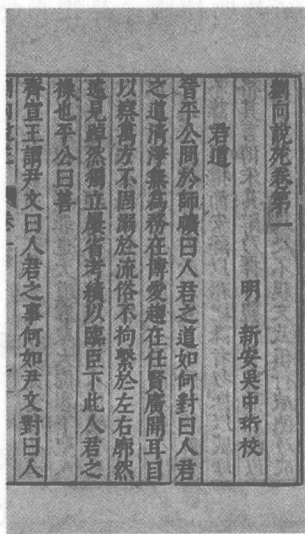 劉向說苑卷第一
明　新安吳中珩校
君道
晉平公問於師曠曰人君之道如何對曰人君
之道清淨無為務在博愛趨在任賢廣開耳目
以察萬方不固溺於流俗不拘繫於左右廓然
遠見踔然獨立屢省考績以臨臣下此人君之
操也平公曰善
齊宣王謂尹文曰人君之事何如尹文對曰人